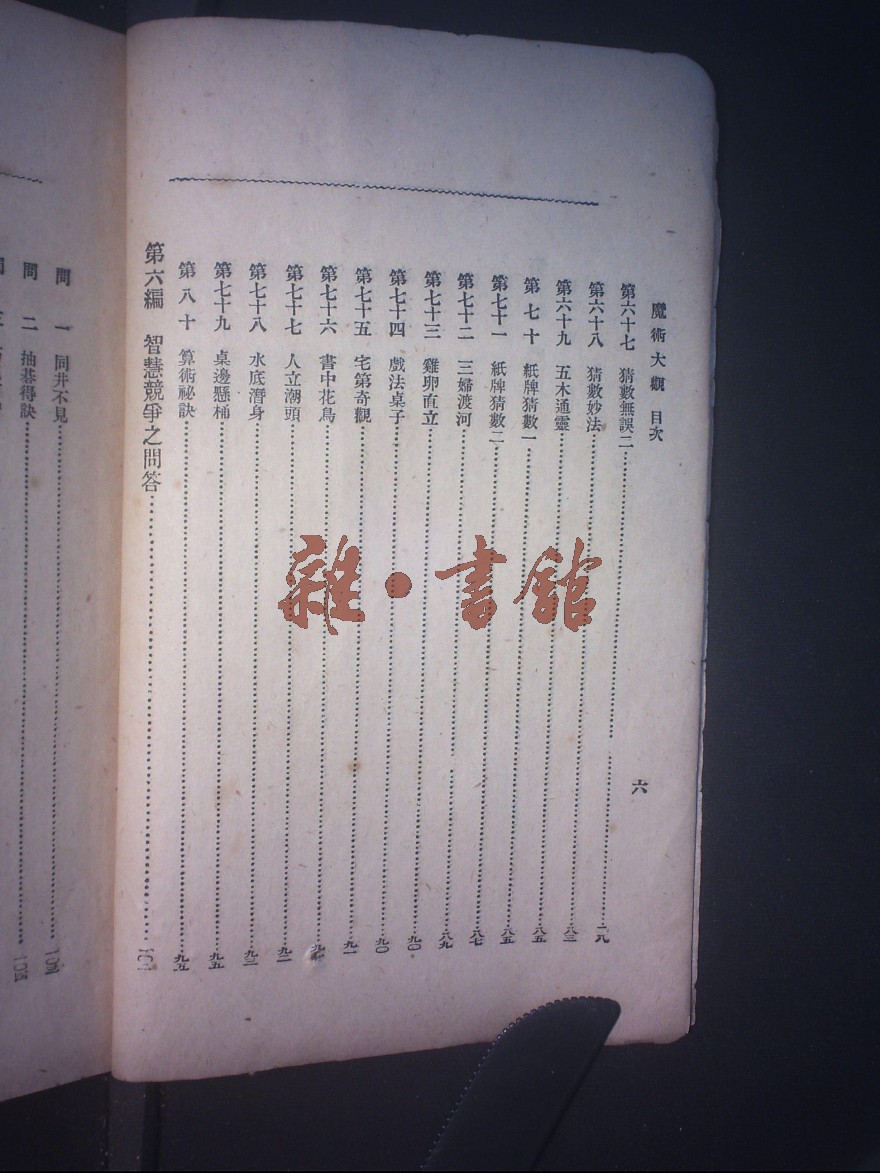 魔術大觀 目次
六
第六十七 猜數無誤二
第六十八 猜數妙法 八三
第六十九 五木通靈 八五
第七十 紙牌猜數一 八五
第七十一 紙牌猜數二 八七
第七十二 三婦渡河 八九
第七十三 雞卵直立 九〇
第七十四 戲法桌子 九〇
第七十五 宅第奇觀 九一
第七十六 書中花鳥
第七十七 人立潮頭 九二
第七十八 水底潛身 九三
第七十九 桌邊懸桶 九五
第八十 算術祕訣 九五
第六編 智慧競爭之問答
問一 同井不見 一〇四
問二 抽碁得訣 一〇四
雜·書館